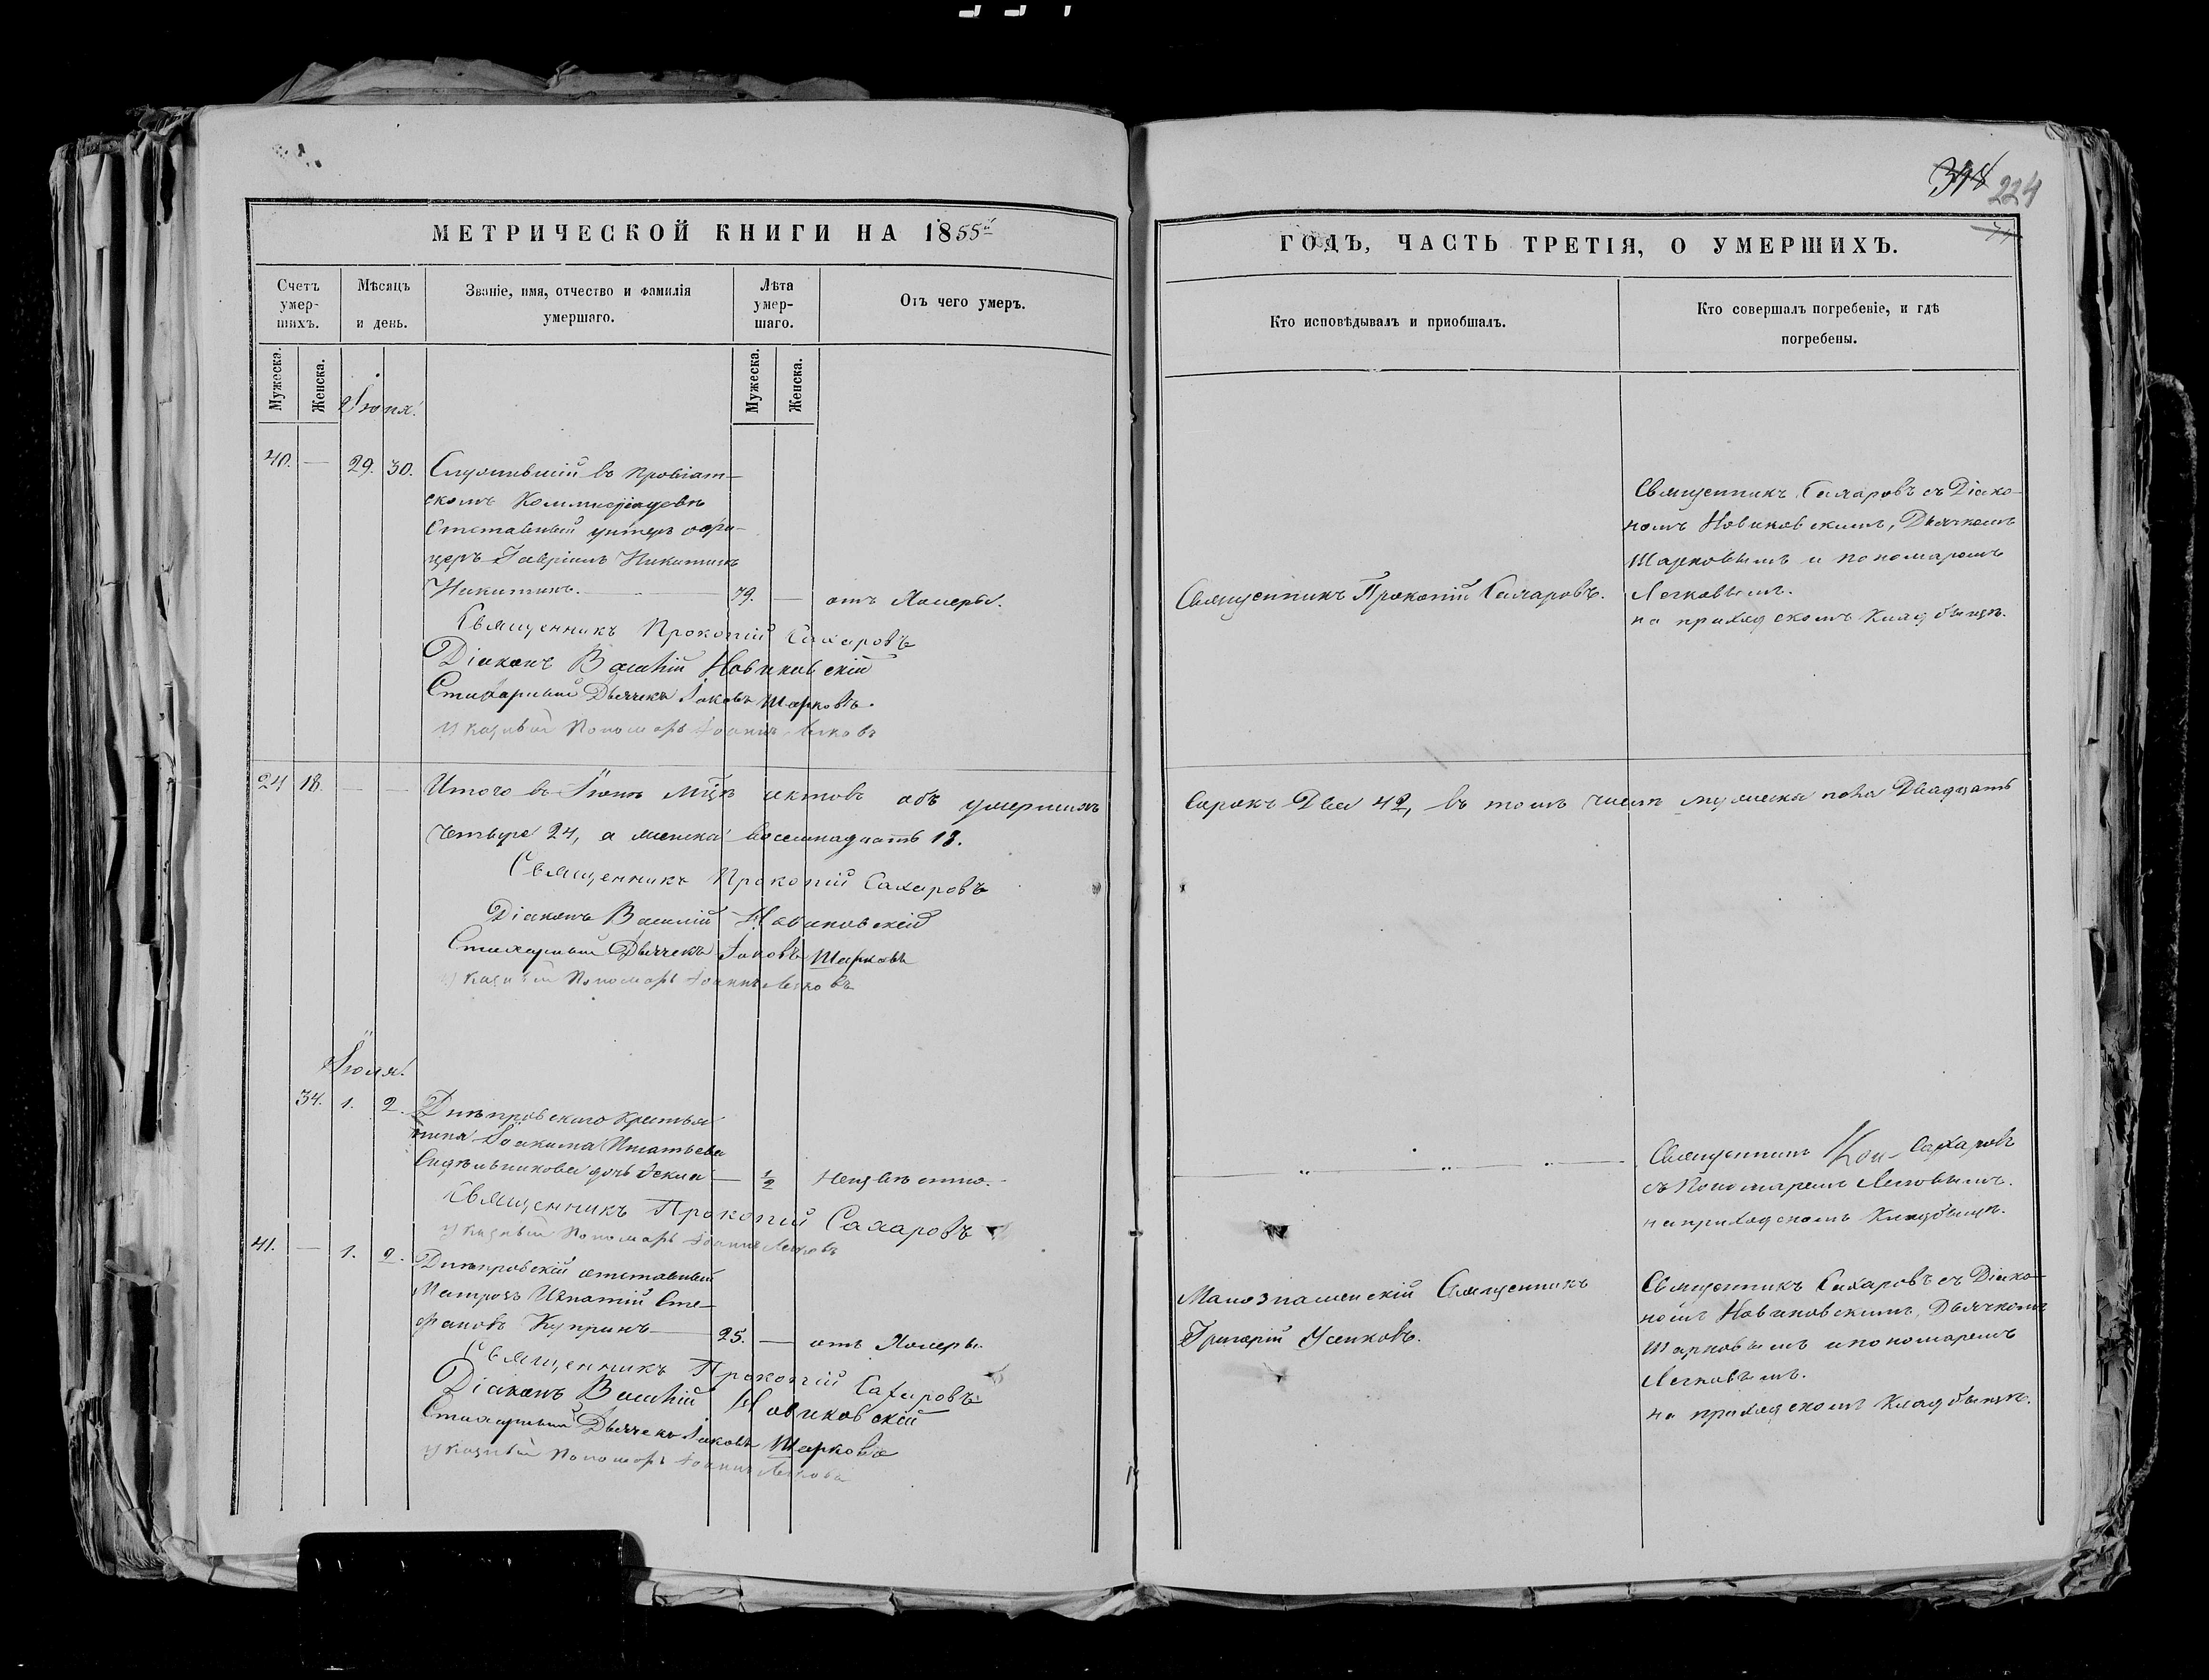 318 224
МЕТРИЧЕСКОЙ КНИГИ НА 1855й
Счетъ умер-шихъ.
Мѣсяцъ и день.
Званіе, имя, отчество и фамилія умершаго.
Лѣта умер-шаго.
Отъ чего умеръ.
Мужеска.
Женска.
Мужеска.
Женска.
Іюня.
40. — 29. 30. Служившій въ Провіант-
скомъ
Отставный унтеръ офи-
церъ Гавріилъ Никитинъ
Никитинъ. — 79. — отъ Холеры.
Священникъ Прокопій Сахаровъ
Діаконъ Василій Новиковскій
Стихарный Дьячекъ Іаковъ Шарковъ.
Указный Пономарь Іоаннъ Легковъ
24 18. — — Итого въ Іюнѣ мцѣ актовъ объ умершихъ
четыре 24, а женска восемнадцать 18.
Священникъ Прокопій Сахаровъ
Діаконъ Василій Новиковскій
Стихарный Дьячекъ Іаковъ Шарковъ
Указный Пономарь Іоаннъ Легковъ
Іюля.
34. 1. 2. Днѣпровскаго крестья
нина Іоакима Игнатьева
дочь Ѳекла — 1/2 Неизвѣстно.
Священникъ Прокопій Сахаровъ
Указный Пономарь Іоаннъ Легковъ
41. — 1. 2. Днѣпровскій отставный
Матрозъ Игнатій Сте-
фановъ Купринъ — 25. — отъ Холеры.
Священникъ Прокопій Сахаровъ
Діаконъ Василій Новиковскій
Стихарный Дьячекъ Іаковъ Шарковъ
Указный Пономарь Іоаннъ Легковъ
ГОДЪ, ЧАСТЬ ТРЕТІЯ, О УМЕРШИХЪ.
Кто исповѣдывалъ и приобщалъ.
Кто совершалъ погребеніе, и гдѣ погребены.
Священникъ Прокопій Сахаровъ.
Священникъ Сахаровъ съ Діако-
номъ Новиковскимъ, Дьячкомъ
Шарковымъ и пономаремъ
Легковымъ.
на приходскомъ Кладбищѣ.
Сорокъ Два 42, въ томъ числѣ мужеска пола Двадцать
Священникъ Сахаровъ
съ Пономаремъ Легковымъ.
на приходскомъ Кладбищѣ.
Малознаменскій Священникъ
Григорій Усенковъ.
Священникъ Сахаровъ съ Діако-
номъ Новиковскимъ, Дьячкомъ
Шарковымъ и пономаремъ
Легковымъ.
на приходскомъ Кладбищѣ.